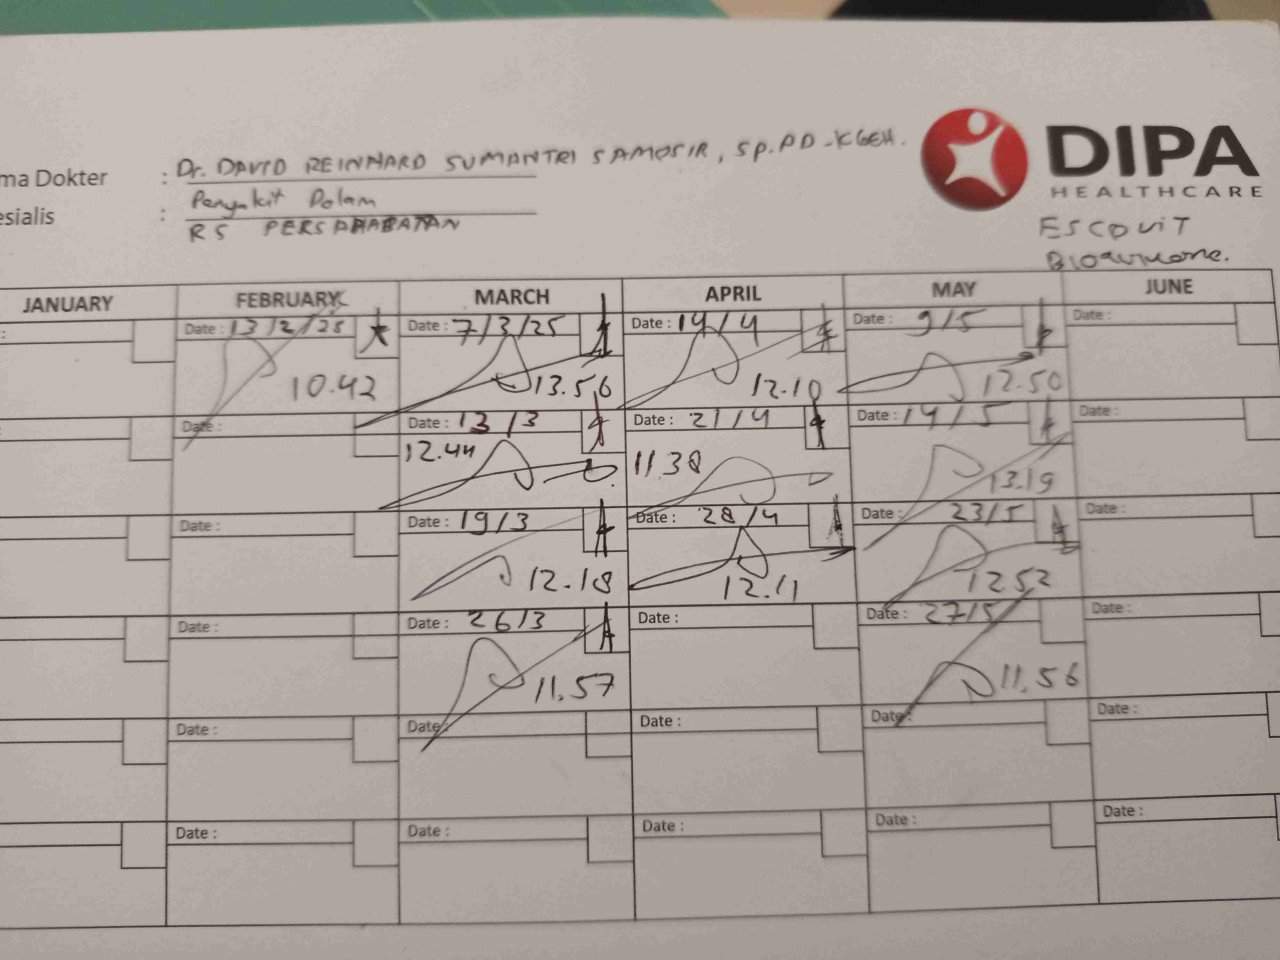 DIPA
HEALTHCARE
ma Dokter : Dr. DAVID REINHARD SUMANTRI SAMOSIR, Sp.PD-KGEH.
esialis : Penyakit Dalam
RS PERSAHABATAN
ESCOVIT
JANUARY FEBRUARY MARCH APRIL MAY JUNE
: Date : 13/2/25 Date : 7/3/25 Date : 14/4 Date : 9/5 Date :
10.42 13.56 12.10 12.50
: Date : Date : 13/3 Date : 21/4 Date : 14/5 Date :
12.44 11.38 13.19
Date : Date : 19/3 Date : 28/4 Date : 23/5 Date :
12.18 12.11 12.52
Date : Date : 26/3 Date : Date : 27/5 Date :
11.57 11.56
Date : Date : Date : Date : Date :
Date : Date : Date : Date : Date :